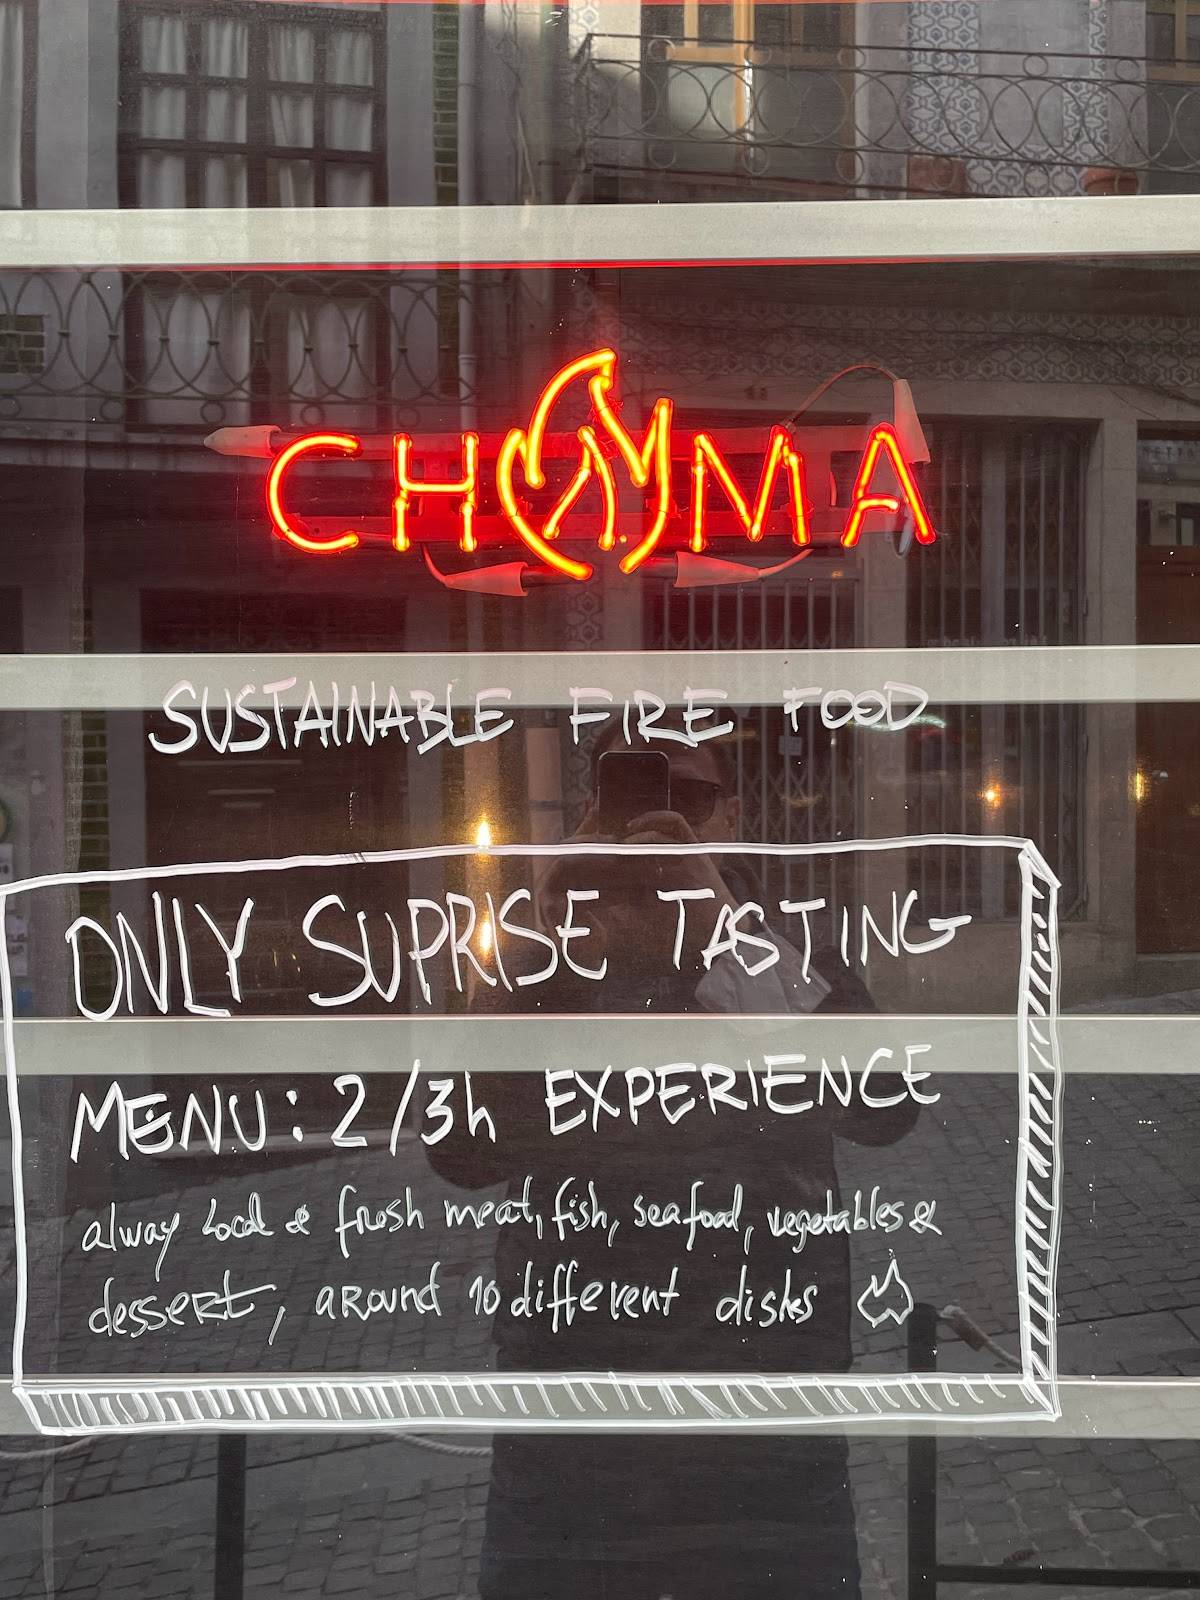 CHAMA
SUSTAINABLE FIRE FOOD
ONLY SUPRISE TASTING
MENU: 2/3h EXPERIENCE
alway local & fresh meat, fish, seafood, vegetables &
dessert, around 10 different dishes